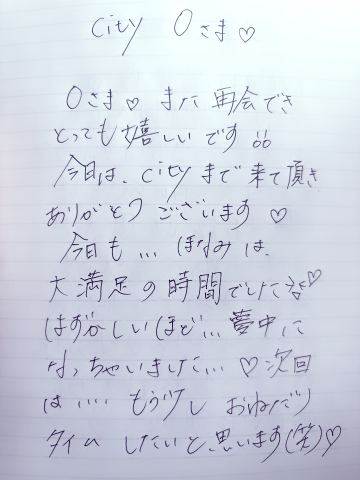 city Oさま♡
Oさま♡ また再会でき
とっても嬉しいです
今日は、cityまで来て頂き
ありがとうございます♡
今日も... ほなみは
大満足の時間でした♡
はずかしいほど... 夢中に
なっちゃいました...♡次回
は.... もう少し おねだり
タイム したいと思います(笑)♡